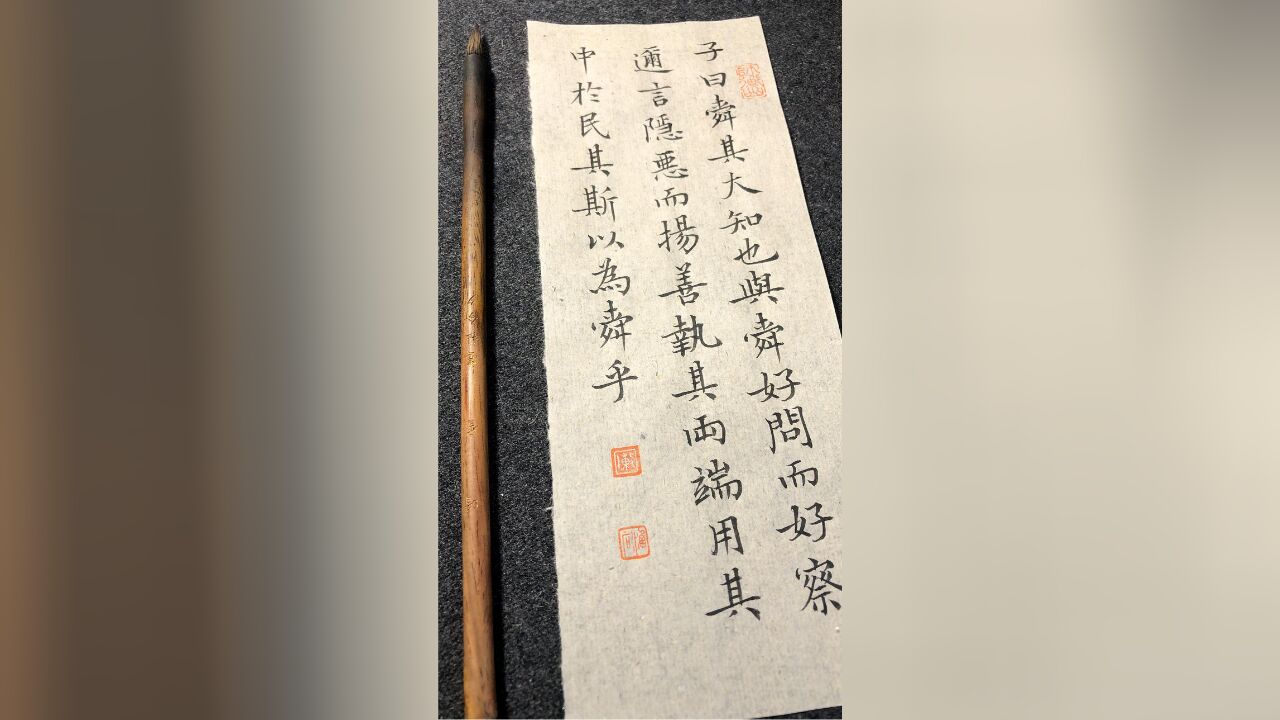 子曰舜其大知也與舜好問而好察
邇言隱惡而揚善執其兩端用其
中於民其斯以為舜乎